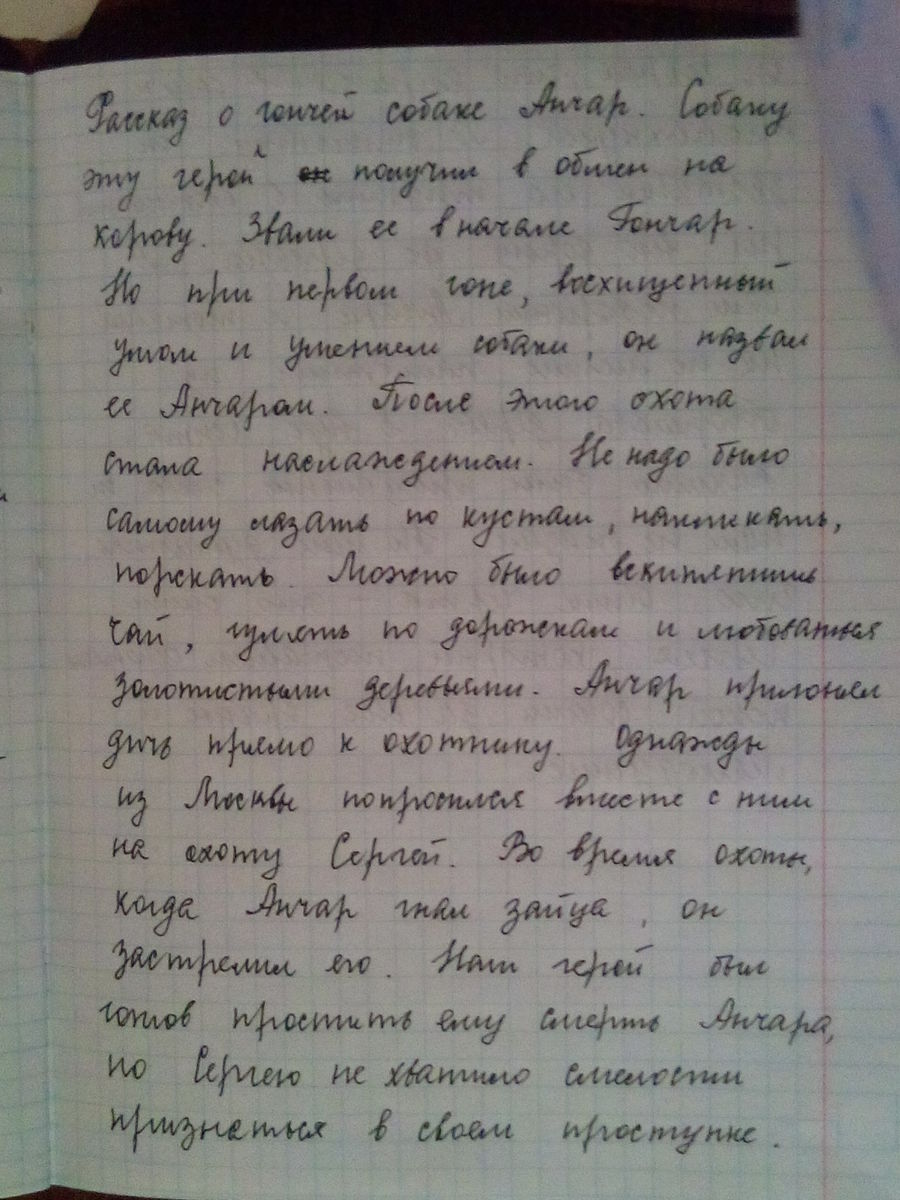 Рассказ о гончей собаке Анчар. Собаку
эту герой он получил в обмен на
корову. Звали ее вначале Гончар.
Но при первом гоне, восхищенный
умом и умением собаки, он назвал
ее Анчаром. После этого охота
стала наслаждением. Не надо было
самому лазать по кустам, накликать,
порскать. Можно было вскипятить
чай, гулять по дорожкам и любоваться
золотистыми деревьями. Анчар пригонял
дичь прямо к охотнику. Однажды
из Москвы попросился вместе с ним
на охоту Сергей. Во время охоты,
когда Анчар гнал зайца, он
застрелил его. Наш герой был
готов простить ему смерть Анчара,
но Сергею не хватило смелости
признаться в своем проступке.